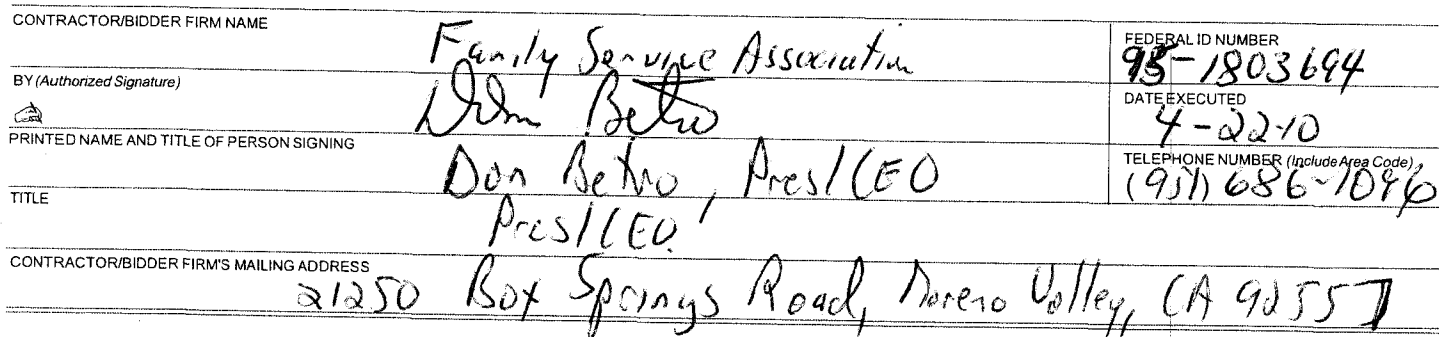 CONTRACTOR/BIDDER FIRM NAME
Family Service Association
FEDERAL ID NUMBER
95-1803694
BY (Authorized Signature)
Dom Betro
DATE EXECUTED
4-22-10
PRINTED NAME AND TITLE OF PERSON SIGNING
Dom Betro, Pres/CEO
TELEPHONE NUMBER (Include Area Code)
(951) 686-1096
TITLE
Pres/CEO
CONTRACTOR/BIDDER FIRM'S MAILING ADDRESS
21250 Box Springs Road, Moreno Valley, CA 92557